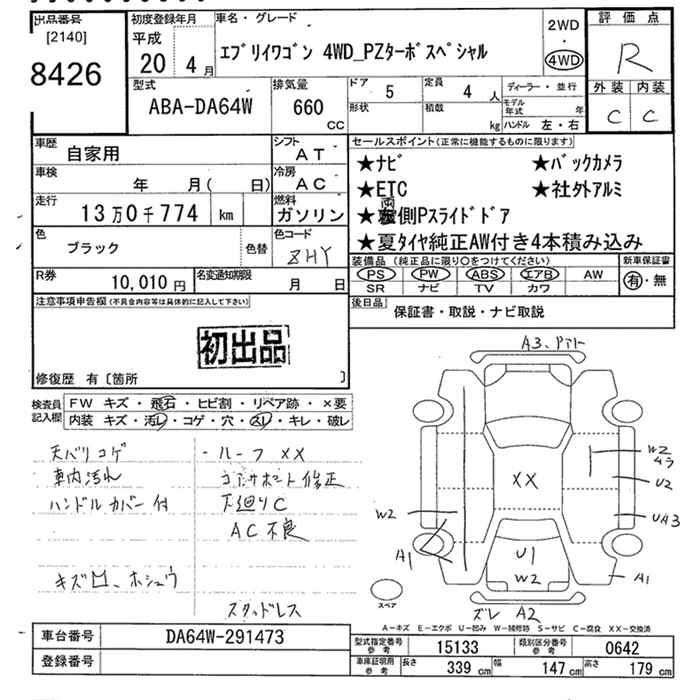 出品番号
[2140]
8426
初度登録年月
平成
20 年 4 月
車名・グレード
エブリイワゴン 4WD_PZターボスペシャル
2WD
・
4WD
評価点
R
外装 内装
C C
型式
ABA-DA64W
排気量
660
CC
ドア 5
形状
定員 4 人
積載 kg
ディーラー・並行
モデル年式 年
ハンドル 左・右
車歴 自家用
シフト AT
車検 年 月( 日)
冷房 AC
走行 13万0千774 km
燃料 ガソリン
色 ブラック
色替
色コード ZHY
R券 10,010円
名変通知期限 月 日
セールスポイント(正常に機能するものに限ります)
★ナビ ★バックカメラ
★ETC ★社外アルミ
★両側Pスライドドア
★夏タイヤ純正AW付き4本積み込み
装備品 (純正品に限り〇をつけてください)
PS PW ABS エアB AW
SR ナビ TV カワ
新車保証書
有・無
後日品 保証書・取説・ナビ取説
注意事項申告欄(不具合内容等は具体的に記入して下さい)
初出品
修復歴 有〔箇所 〕
検査員記入欄
FW キズ・飛石・ヒビ割・リペア跡・×要
内装 キズ・汚レ・コゲ・穴・スレ・キレ・破レ
天バリコゲ
車内汚れ
ハンドルカバー付
キズ凹、ホシュウ
・ルーフ XX
コアサポート修正
下廻りC
AC不良
スタッドレス
A3、
XX
W2
A1
U1
W2
W2
U2
UA3
A1
ズレ A2
スペア
A-キズ E-エクボ U-凹み W-補修跡 S-サビ C-腐食 XX-交換済
車台番号 DA64W-291473
登録番号
型式指定番号 参考 15133
類別区分番号 参考 0642
車庫証明用 参考
長さ 339 cm
幅 147 cm
高さ 179 cm